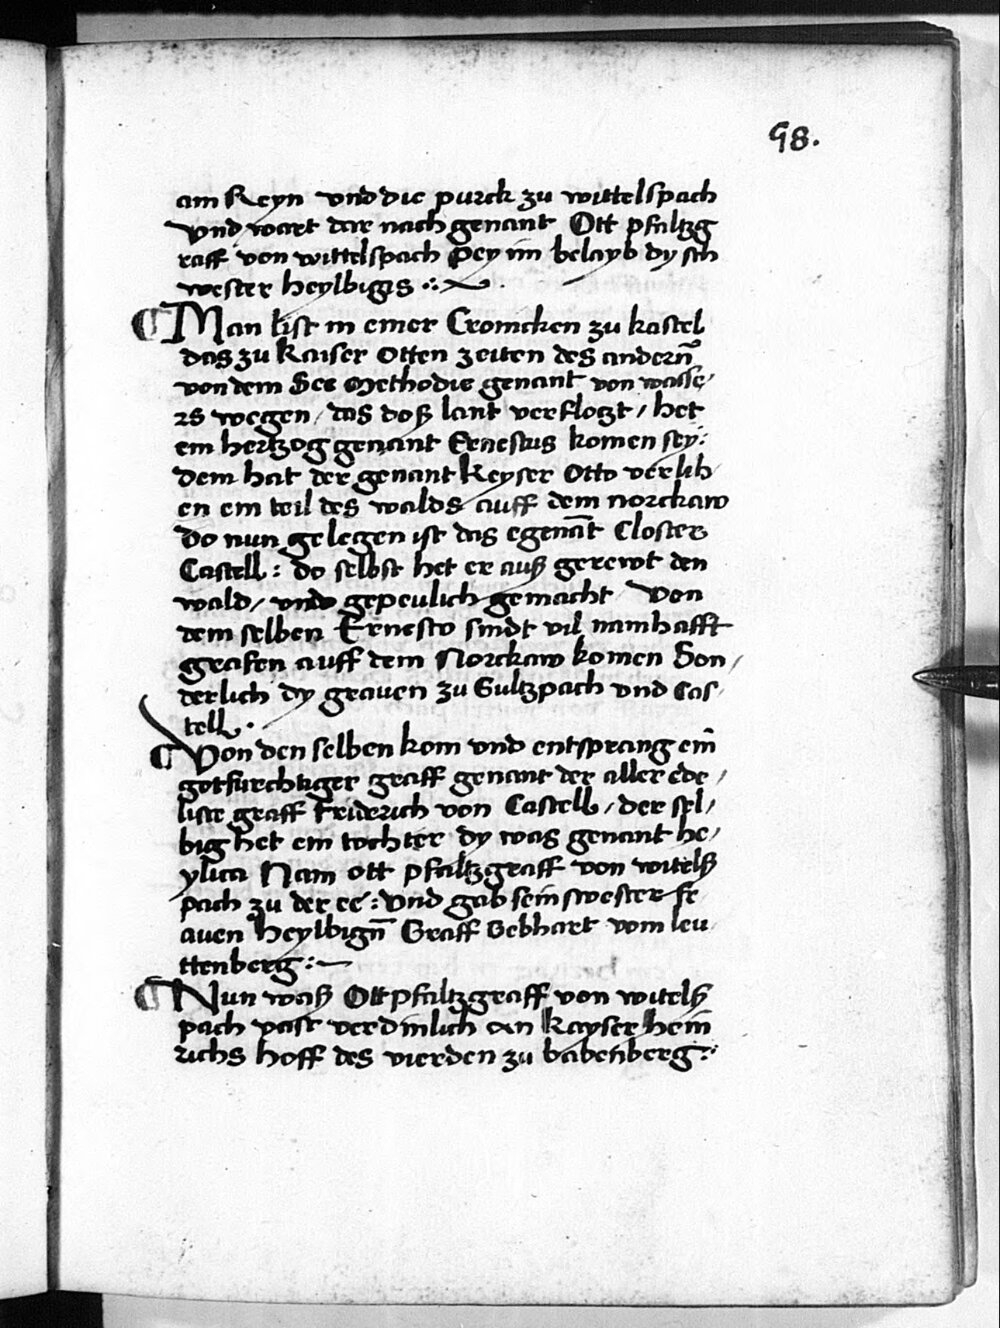 98.
am Reyn vnd die purck zu wittelspach
vnd wart dar nach genant Ott pfaltzg
raff von wittelspach Pey im belayb dy sch
wester heylbigis :~
Man list in einer Cronicken zu kastel
das zu Kaiser Otten zeiten des andern̄
von dem See Methodie genant von wasse/
rs wegen / das doß lant verflogt / het
ein hertzog genant Ernestus komen sey:
dem hat der genant Keyser Otto verlih
en ein teil des walds auff dem norckaw
do nun gelegen ist das egenāt Closter
Castell : do selbst het er auß gerewt den
wald / vnd gepeulich gemacht / Von
dem selben Ernesto sindt vil namhafft
grafen auff dem Norckaw komen Son /
derlich dy grauen zu Sultzpach vnd Cas /
tell .
Von den selben kom vnd entsprang ein̄
gotfurchtiger graff genant der aller ede /
liste graff Friderich von Castell / der sel /
big het ein tochter dy was genant he /
ylica Nam ott pfaltzgraff von witelß
pach zu der ee : vnd gab sein swester fr
auen heylbign̄ Graff Gebhart vom leu
ttenberg :~
Nun waß Ott pfaltzgraff von witelß
pach vast verdinlich an Kayser hein
richs hoff des vierden zu babenberg :